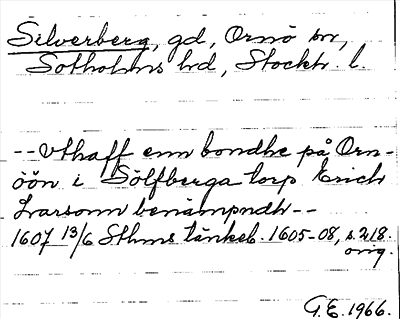 Silverberg, gd, Ornö sn,
Sotholms hd, Stockh. l.
-- Vthaff enn bondhe på Orn-
öön i Sölfberga torp Erich
Larsonn benämpndh --
1607 13/6 Sthms tänkeb. 1605-08, s. 218.
orig.
G.E. 1966.